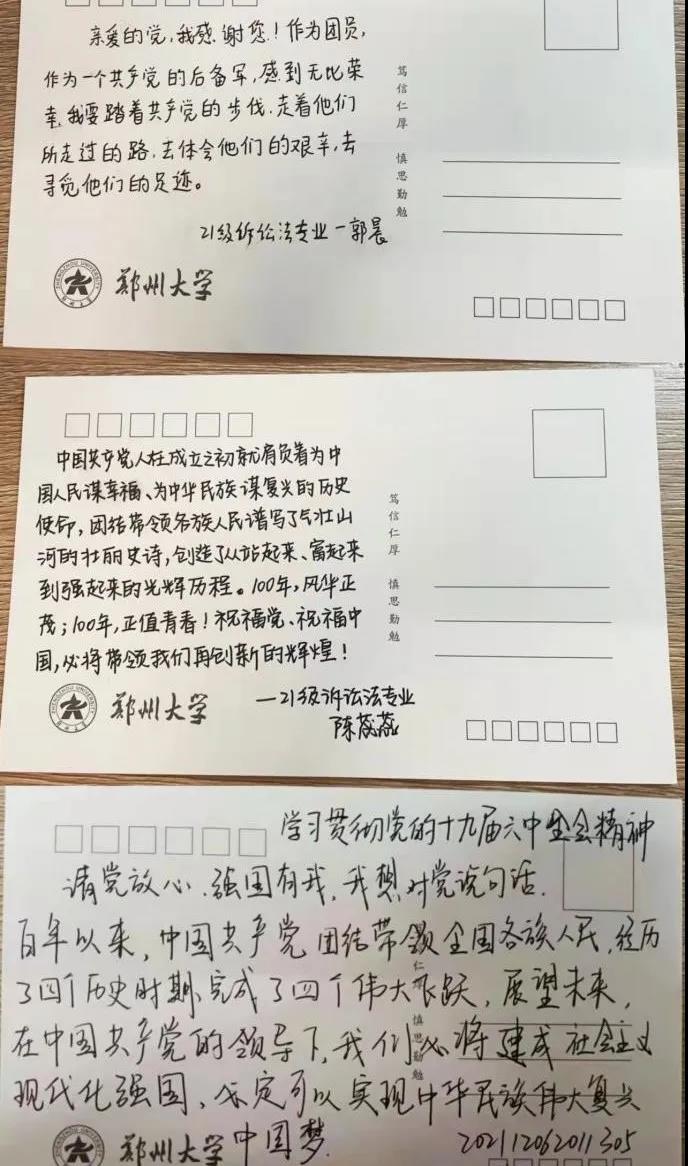 亲爱的党，我感谢您！作为团员，
作为一个共产党的后备军，感到无比荣
幸，我要踏着共产党的步伐，走着他们
所走过的路，去体会他们的艰辛，去
寻觅他们的足迹。
21级诉讼法专业一郭晨
笃信仁厚 慎思勤勉
郑州大学
中国共产党人在成立之初就肩负着为中
国人民谋幸福、为中华民族谋复兴的历史
使命，团结带领各族人民谱写了气壮山
河的壮丽史诗，创造了从站起来、富起来
到强起来的光辉历程。100年，风华正
茂；100年，正值青春！祝福党、祝福中
国，必将带领我们再创新的辉煌！
一21级诉讼法专业
陈蕊燕
笃信仁厚 慎思勤勉
郑州大学
学习贯彻党的十九届六中全会精神
请党放心、强国有我，我想对党说句话.
百年以来，中国共产党团结带领全国各族人民，经历
了四个历史时期，完成了四个伟大飞跃，展望未来，
在中国共产党的领导下，我们必将建成社会主义
现代化强国、必定可以实现中华民族伟大复兴
中国梦.
202112062011305
郑州大学